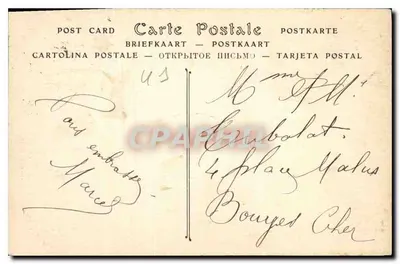 POST CARD Carte Postale POSTKARTE
BRIEFKAART — POSTKAART
CARTOLINA POSTALE — ОТКРЫТОЕ ПИСЬМО — TARJETA POSTAL
Vous embrasse
Marcel
Mme & M.
4 place Malus
Bourges Cher